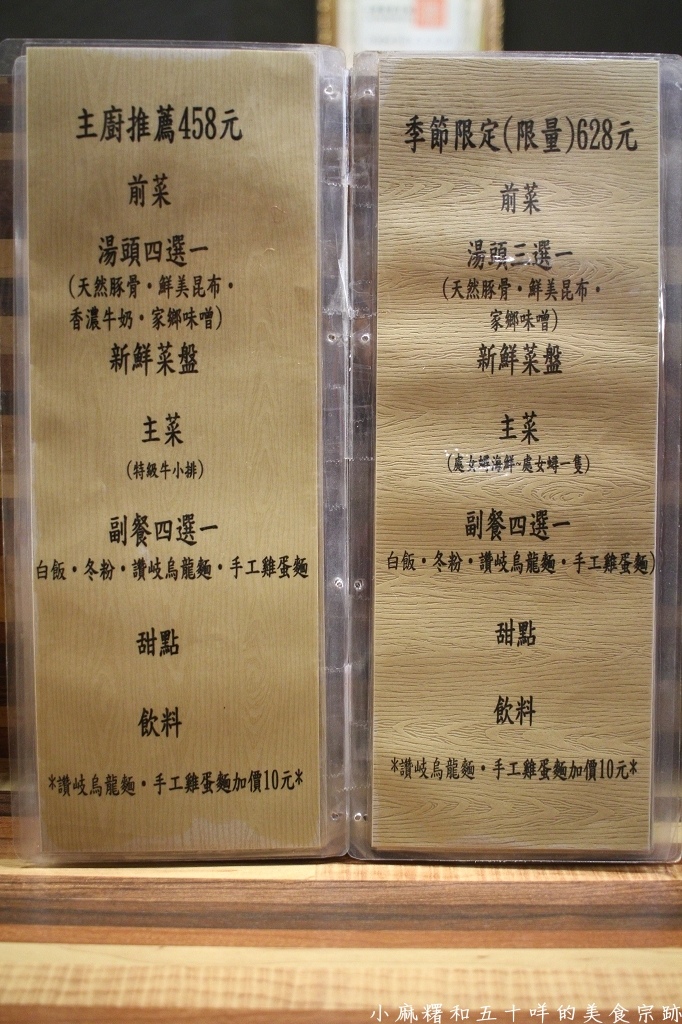 主廚推薦458元
前菜
湯頭四選一
(天然豚骨・鮮美昆布・
香濃牛奶・家鄉味噌)
新鮮菜盤
主菜
(特級牛小排)
副餐四選一
白飯・冬粉・讚岐烏龍麵・手工雞蛋麵
甜點
飲料
*讚岐烏龍麵・手工雞蛋麵加價10元*
季節限定(限量)628元
前菜
湯頭三選一
(天然豚骨・鮮美昆布・
家鄉味噌)
新鮮菜盤
主菜
(處女蟳海鮮~處女蟳一隻)
副餐四選一
白飯・冬粉・讚岐烏龍麵・手工雞蛋麵)
甜點
飲料
*讚岐烏龍麵・手工雞蛋麵加價10元*
小麻糬和五十咩的美食宗跡